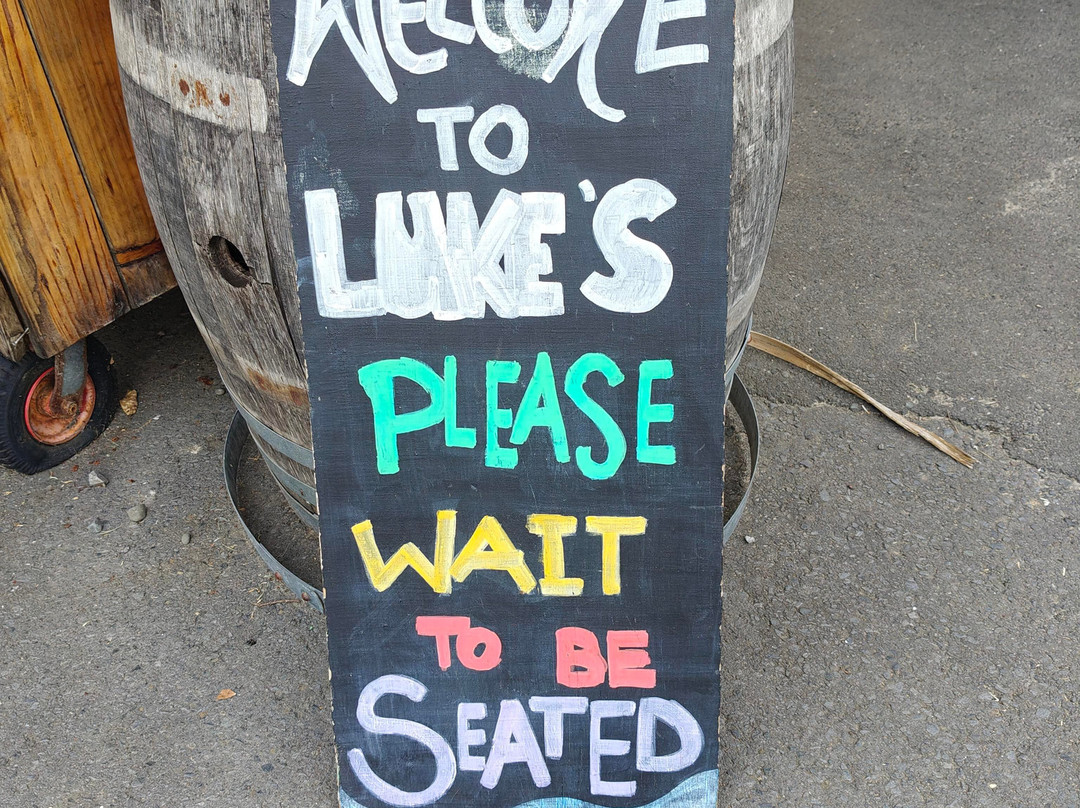 WELCOME
TO
LUKE'S
PLEASE
WAIT
TO BE
SEATED